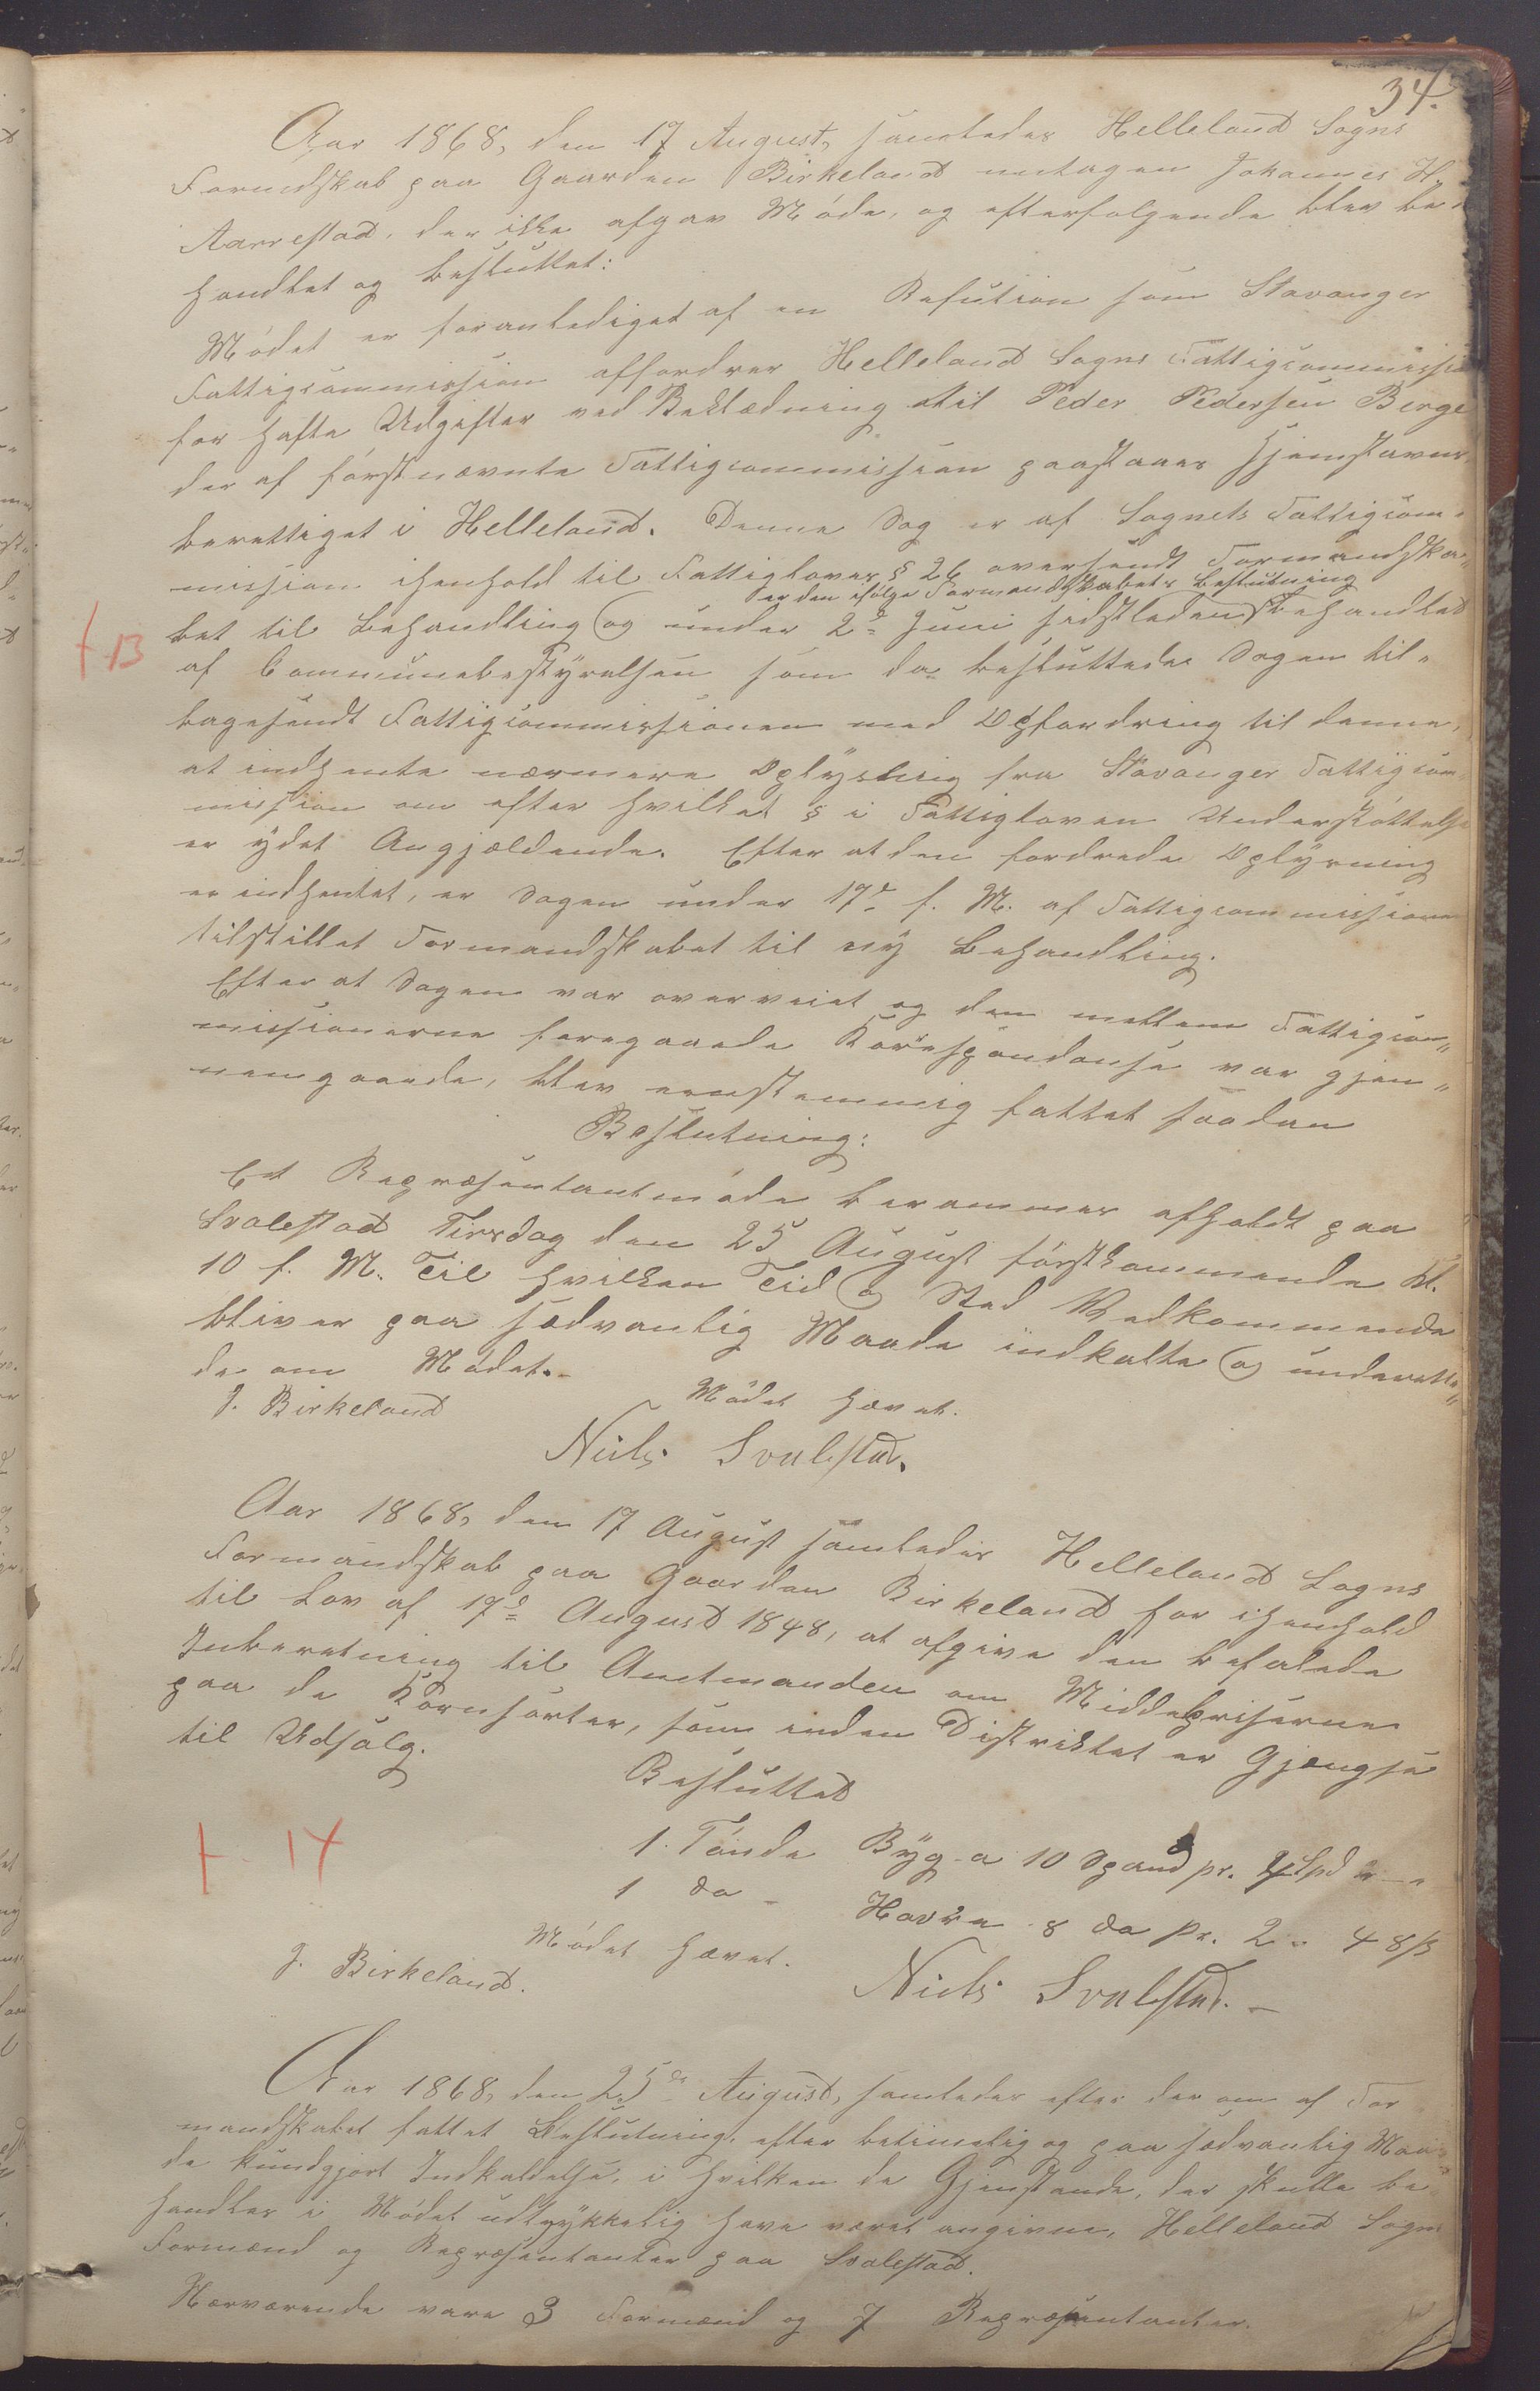 34.
Aar 1868, den 17 August, samledes Helleland Sogns
Formdskab paa Gaarden Birkeland untagen Johannes H.
Aarrestad, der ikke afgav Møde, og efterfølgende blev be-
handlet og besluttet:
Mødet er foranlediget af en Refution som Stavanger
Fattigcommission affordrer Helleland Sogns Fattigcommissio
for hafte Udgifter ved Beklædning til Peder Pedersen Berge
der af førstnævnte Fattigcommission paastaaes Hjemstavns-
berettiget i Helleland. Denne Sag er af Sognets Fattigcom-
mission ihenhold til Fattiglovens § 26 oversendt Formandska-
er den ifølge Formandskabets Beslutning
bet til Behandling og under 2d Juni sidstleden behandlet
+ 13
af Communebestyrelsen som da besluttedes Sagen til-
bagesendt Fattigcommissionen med Opfordring til denne,
at indhente nærmere Oplysning fra Stavanger Fattigcom-
mission om efter hvilket § i Fattigloven Understøttelse
er ydet Angjældende. Efter at den fordrede Oplysning
er indhentet, er Sagen under 17d f. M. af Fattigcommissionen
tilstillet Formandskabet til ny Behandling.
Efter at Sagen var overveiet og den mellem Fattigcom-
missionerne foregaaede Korespondense var gjen-
nemgaaede, blev eenstemmig fattet saadan
Beslutning:
Et Repræsentantmøde berammes afholdt paa
Svalestad Tirsdag den 25 August førstkommende Kl.
10 f. M. Til hvilken Tid og Sted Vedkommende
bliver paa sædvanlig Maade indkalte og underrette-
de om Mødet.
Mødet hævet.
J. Birkeland
Niels Svalestad.
Aar 1868, den 17 August samledes Helleland Sogns
Formandskab paa Gaarden Birkeland for ihenhold
til Lov af 17d August 1848, at afgive den befalede
Inberetning til Amtmanden om Middelpriserne
paa de Kornsorter, som inden Distriktet er Gjængse
til Udsalg.
Besluttet
+ 14
1. Tønde Byg a 10 Spand pr. 4 Spd " - "
1 do - Havre 8 do pr. 2 " 48 ß
Mødet hævet.
J. Birkeland.
Niels Svalestad. -
Aar 1868, den 25de August, samledes efter der om af For
mandskabet fattet Beslutning, efter betimelig og paa sædvanlig Maa-
de kundgjort Indkaldelse, i hvilken de Gjenstande, der skulle be
handles i Mødet udtrykkelig have været angivne, Helleland Sogns
Formænd og Repræsentanter paa Svalestad.
Nærværende vare 3 Formænd og 7 Repræsentanter.